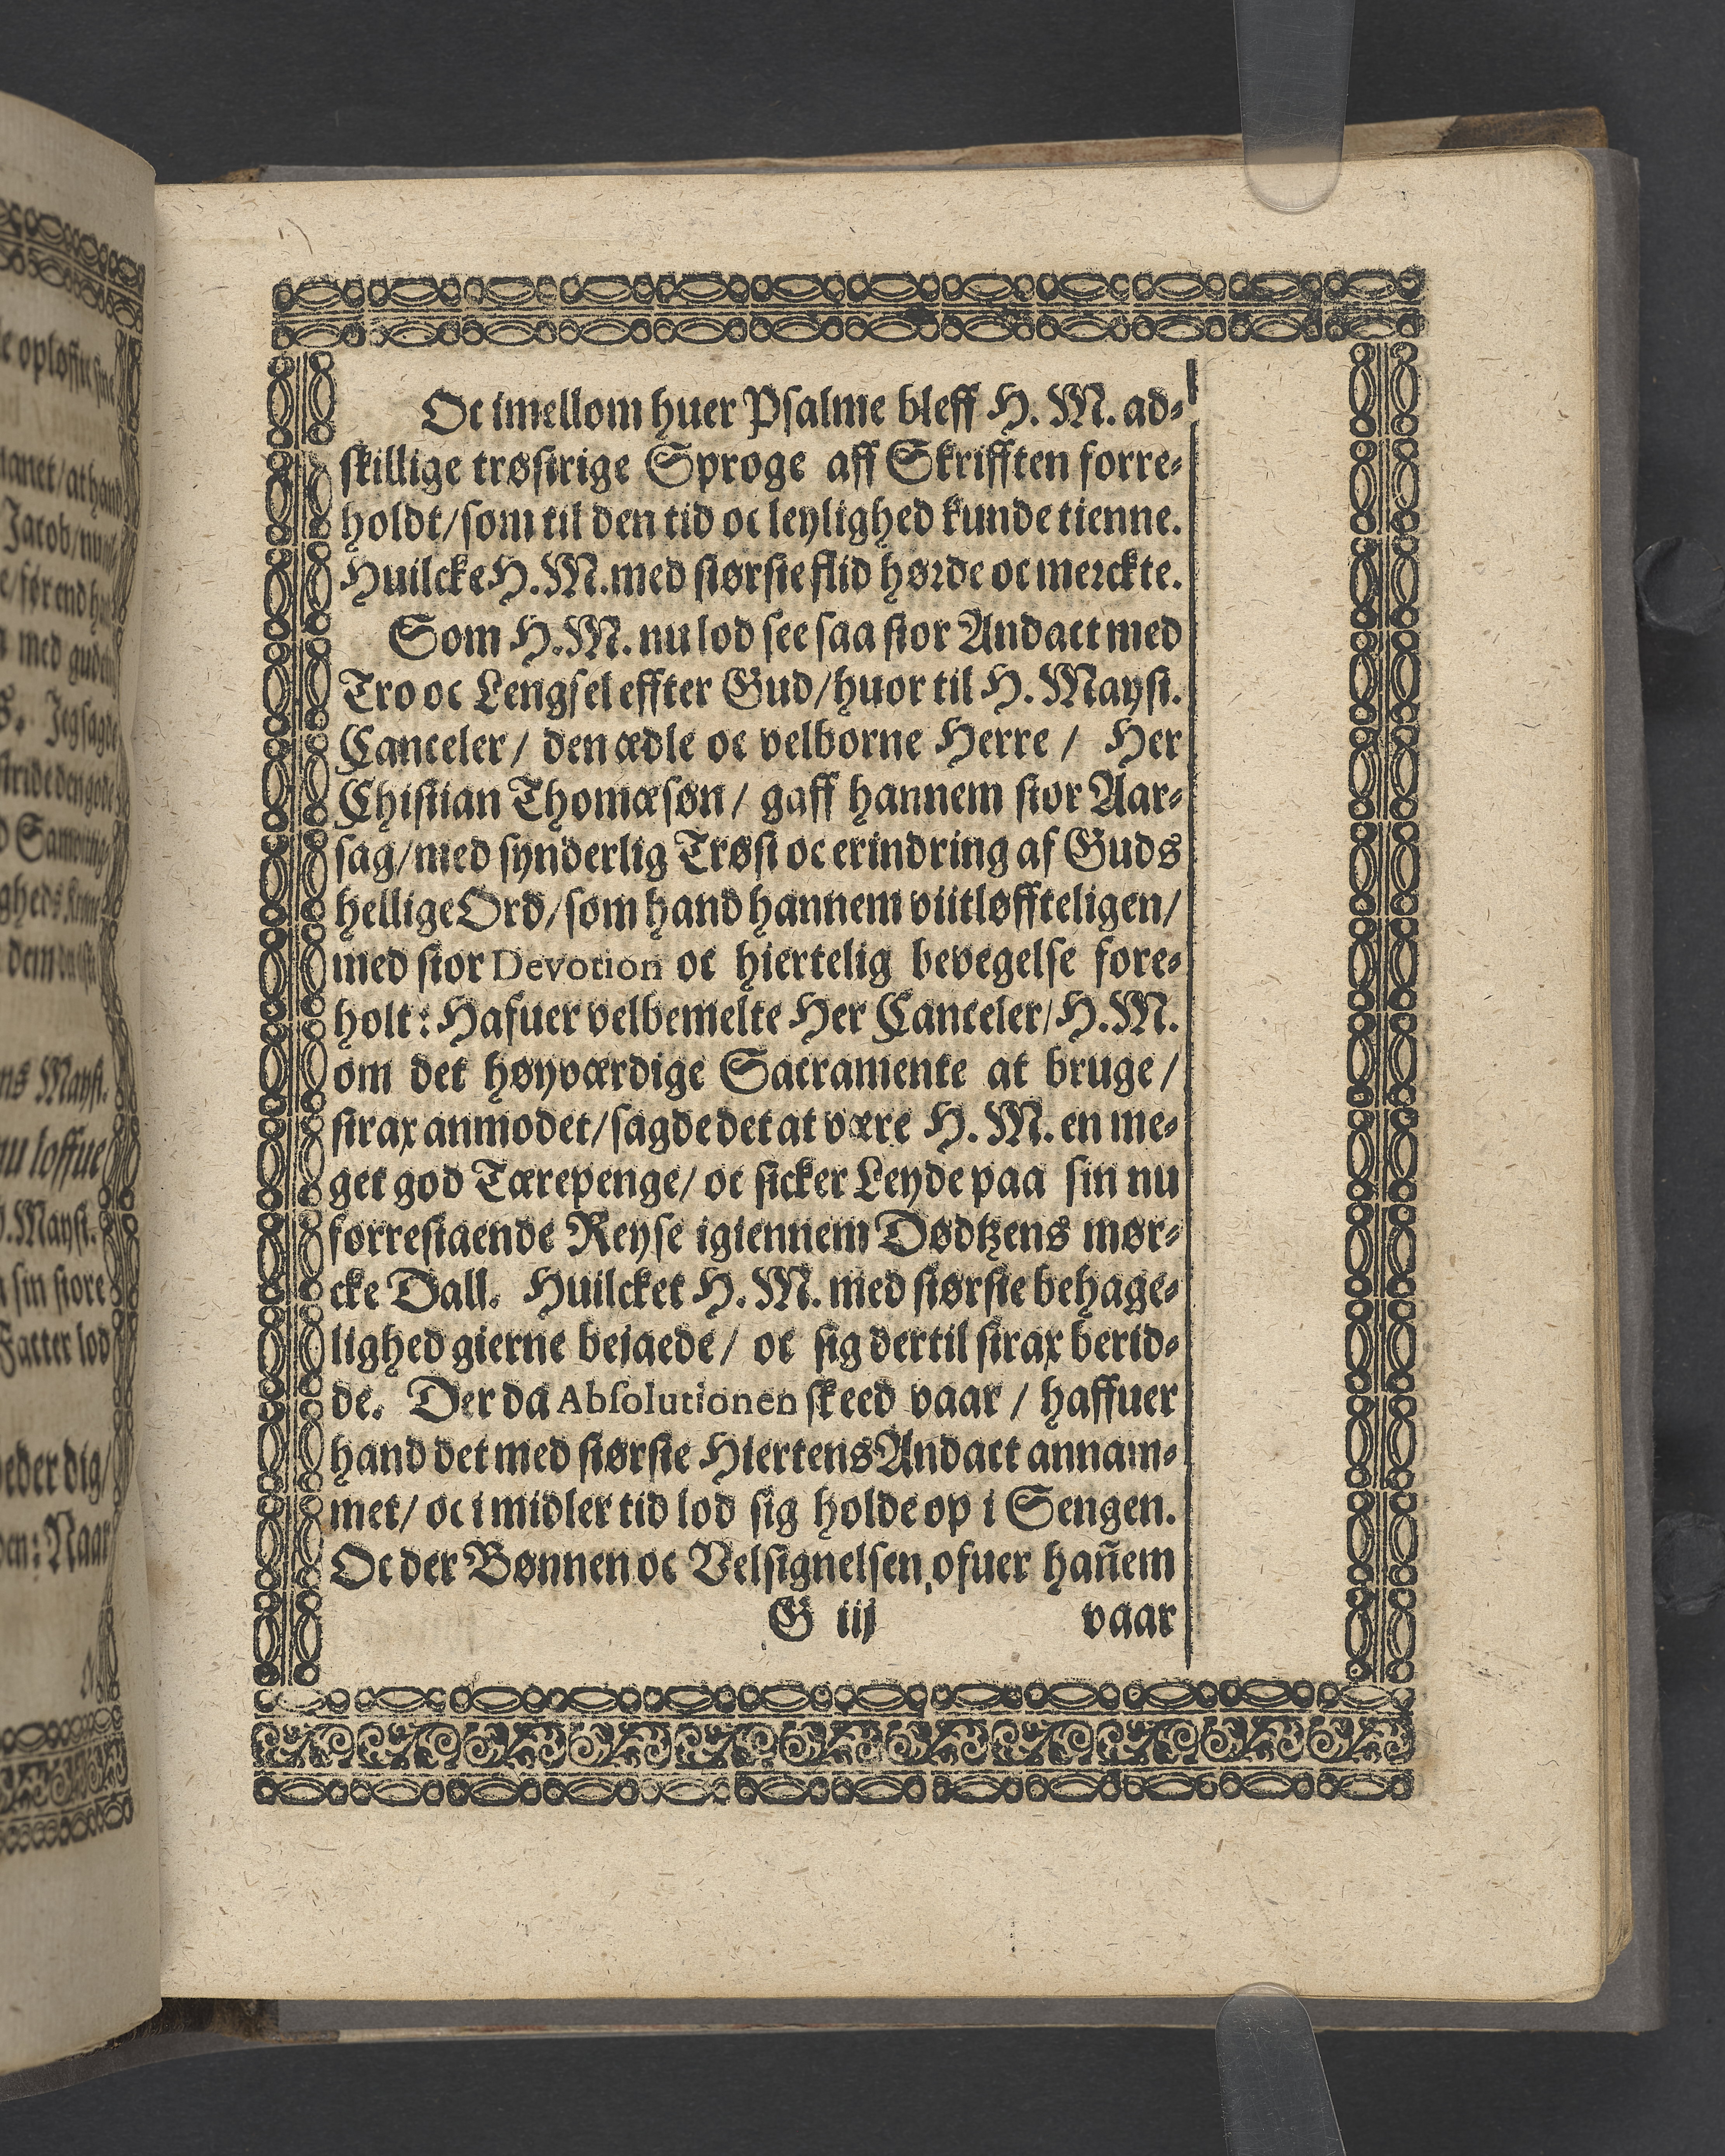 Oc imellom huer Psalme bleff H. M. ad-
skillige trøstrige Sproge aff Skrifften forre-
holdt/som til den tid oc leylighed kunde tienne.
Huilcke H. M. med største flid hørde oc merckte.
Som H. M. nu lod see saa stor Andact med
Tro oc Lengsel effter Gud/huor til H. Mayst.
Canceler/ den ædle oc velborne Herre / Her
Chistian Thomæsøn/ gaff hannem stor Aar-
sag/med synderlig Trøst oc erindring af Guds
hellige Ord/som hand hannem viitløffteligen/
med stor Devotion oc hiertelig bevegelse fore-
holt: Hafuer velbemelte Her Canceler/H. M.
om det høyværdige Sacramente at bruge/
strax anmodet/sagde det at være H. M. en me-
get god Tærepenge/ oc sicker Leyde paa sin nu
forrestaende Reyse igiennem Dødtzens mør-
cke Dall. Huilcket H. M. med største behage-
lighed gierne bejaede/ oc sig dertil strax berid-
de. Der da Absolutionen skeed vaar / haffuer
hand det med største Hiertens Andact annam-
met/ oc i midler tid lod sig holde op i Sengen.
Oc der Bønnen oc Velsignelsen ofuer hañem
G iij vaar